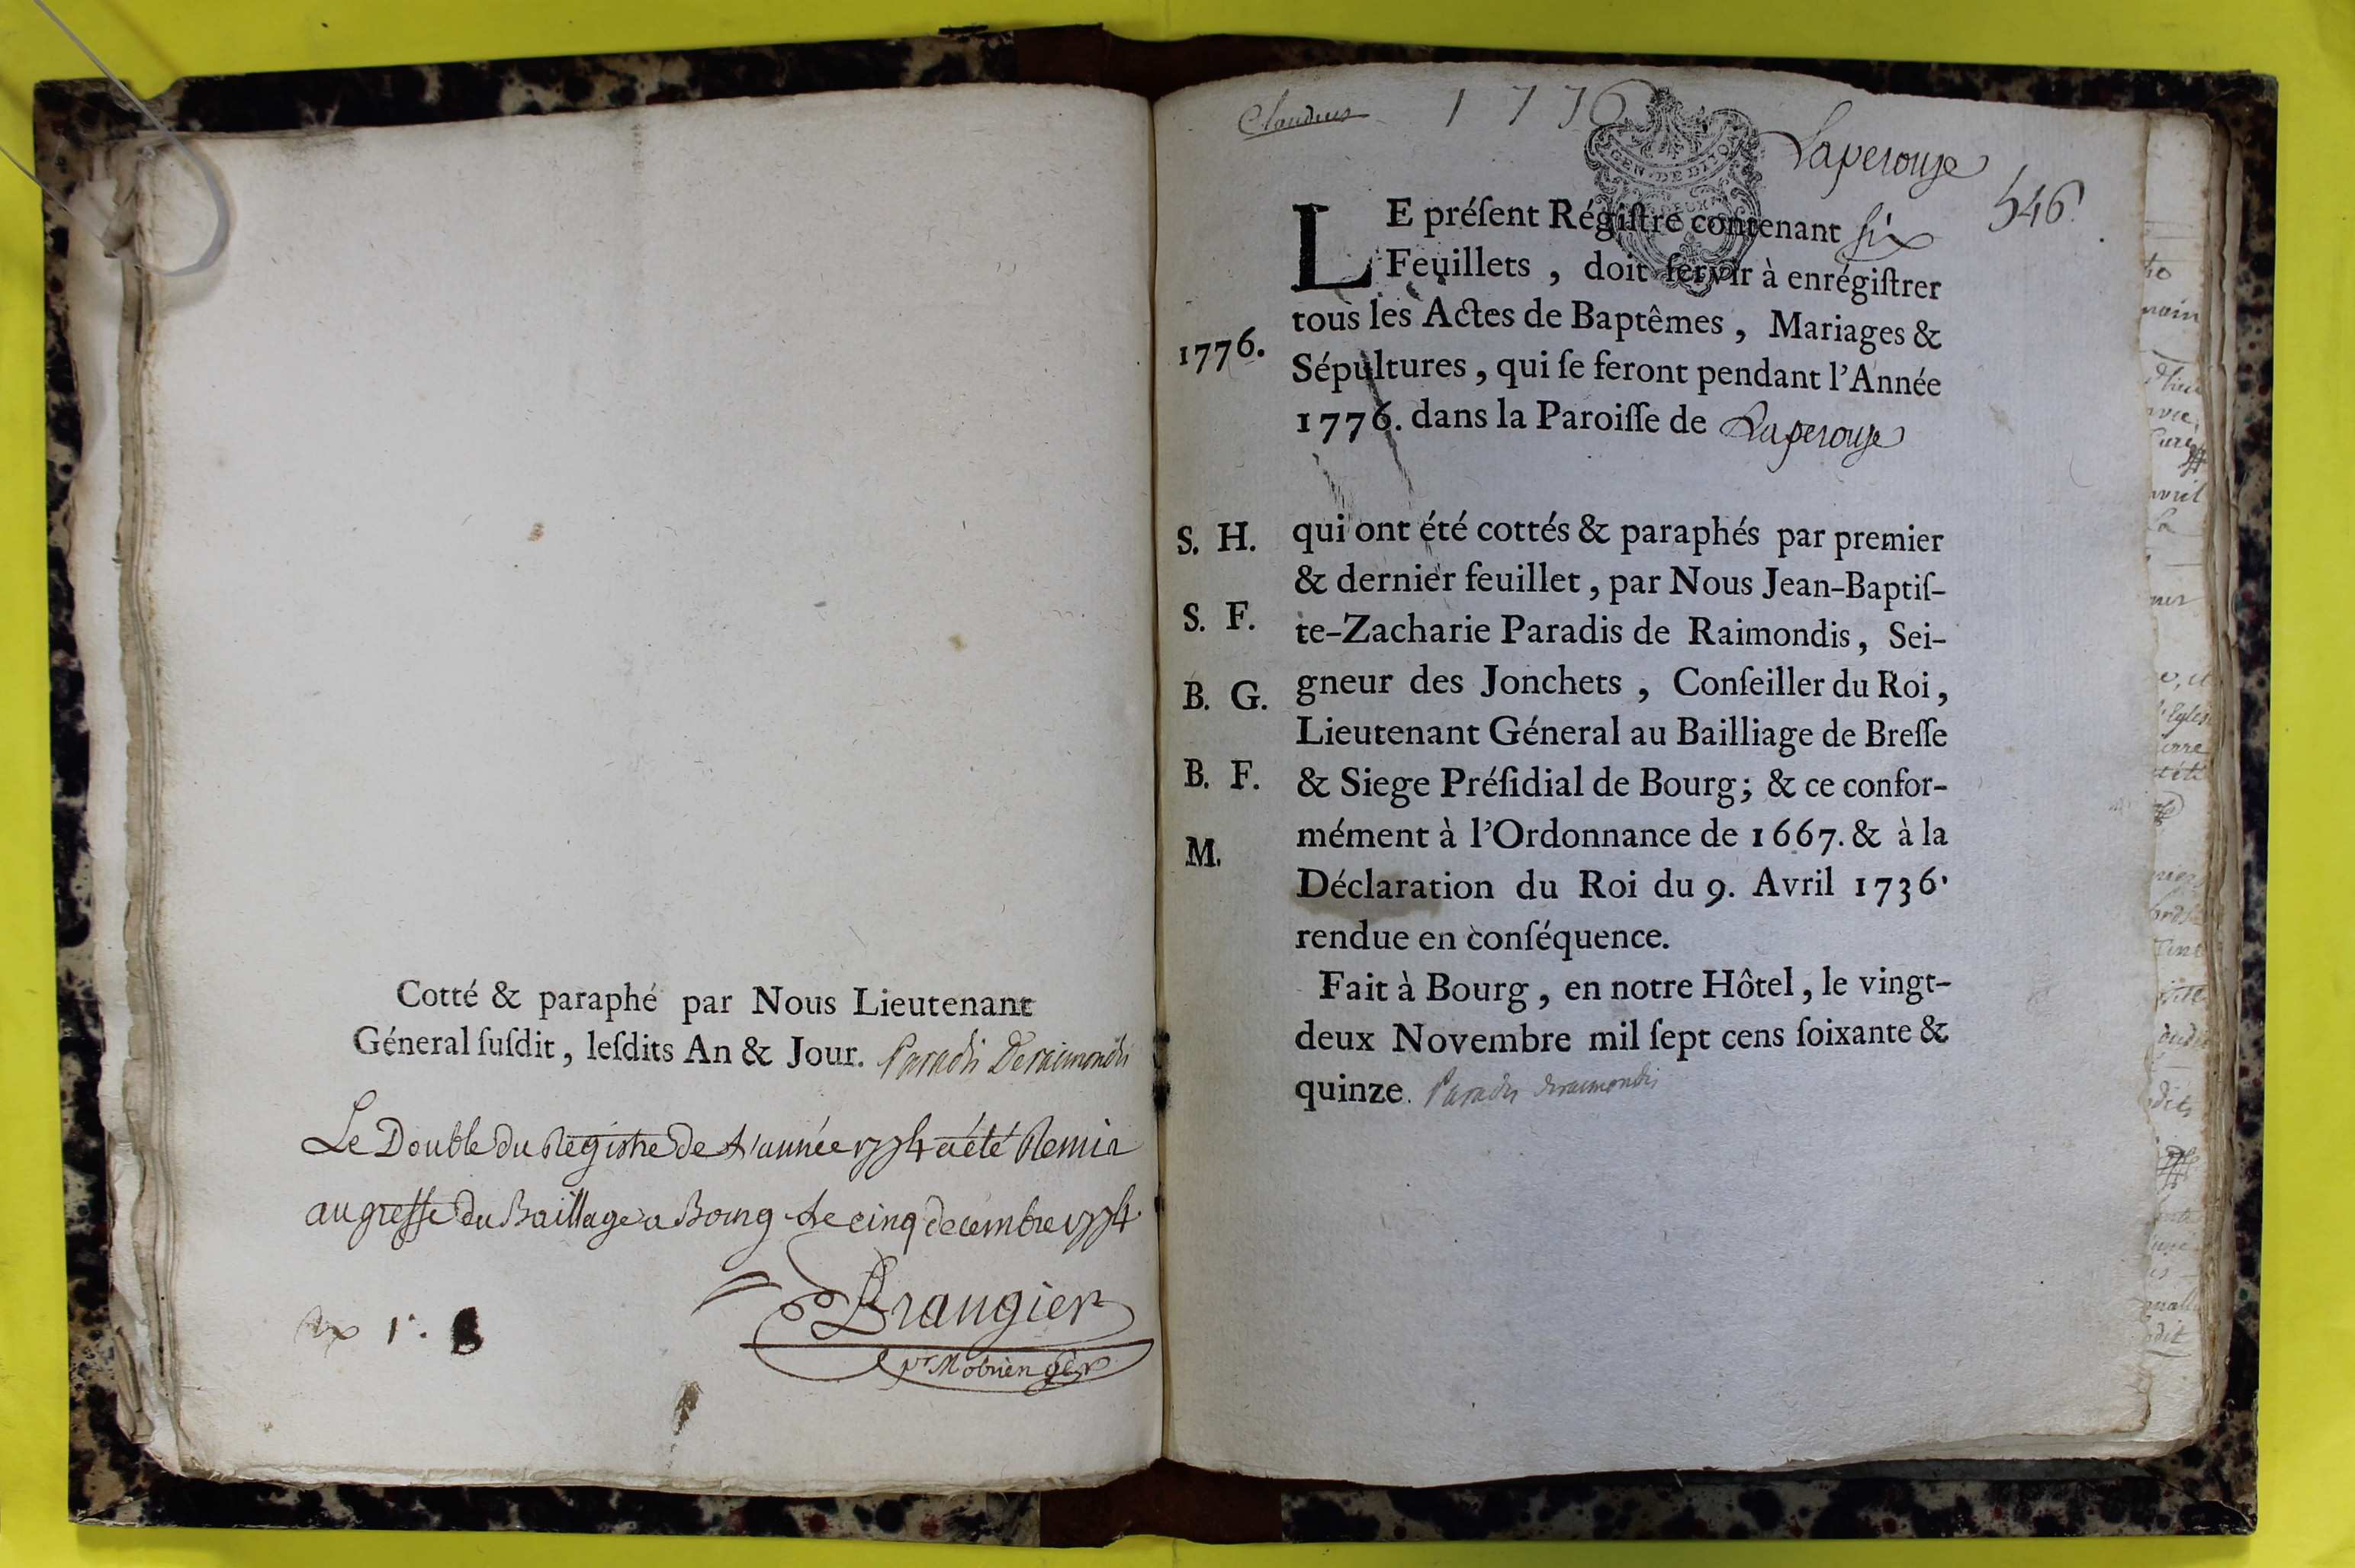 Cotté & paraphé par Nous Lieutenant
Géneral ſuſdit, leſdits An & Jour. Paradis Deraimondis
Le Double du Registre de L'année 1774 a été Remis
au greffe du Baillage a Bourg le cinq decembre 1774
Brangier
1776
Laperouse
546
LE préſent Régiſtre contenant ſix
Feuillets, doit ſervir à enrégiſtrer
tous les Actes de Baptêmes, Mariages &
1776.
Sépultures, qui ſe feront pendant l'Année
1776. dans la Paroiſſe de Laperouse
S. H.
qui ont été cottés & paraphés par premier
& dernier feuillet, par Nous Jean-Baptiſ-
S. F.
te-Zacharie Paradis de Raimondis, Sei-
B. G.
gneur des Jonchets, Conſeiller du Roi,
Lieutenant Géneral au Bailliage de Breſſe
B. F.
& Siege Préſidial de Bourg; & ce confor-
M.
mément à l'Ordonnance de 1667. & à la
Déclaration du Roi du 9. Avril 1736.
rendue en conſéquence.
Fait à Bourg, en notre Hôtel, le vingt-
deux Novembre mil ſept cens ſoixante &
quinze. Paradis deraimondis